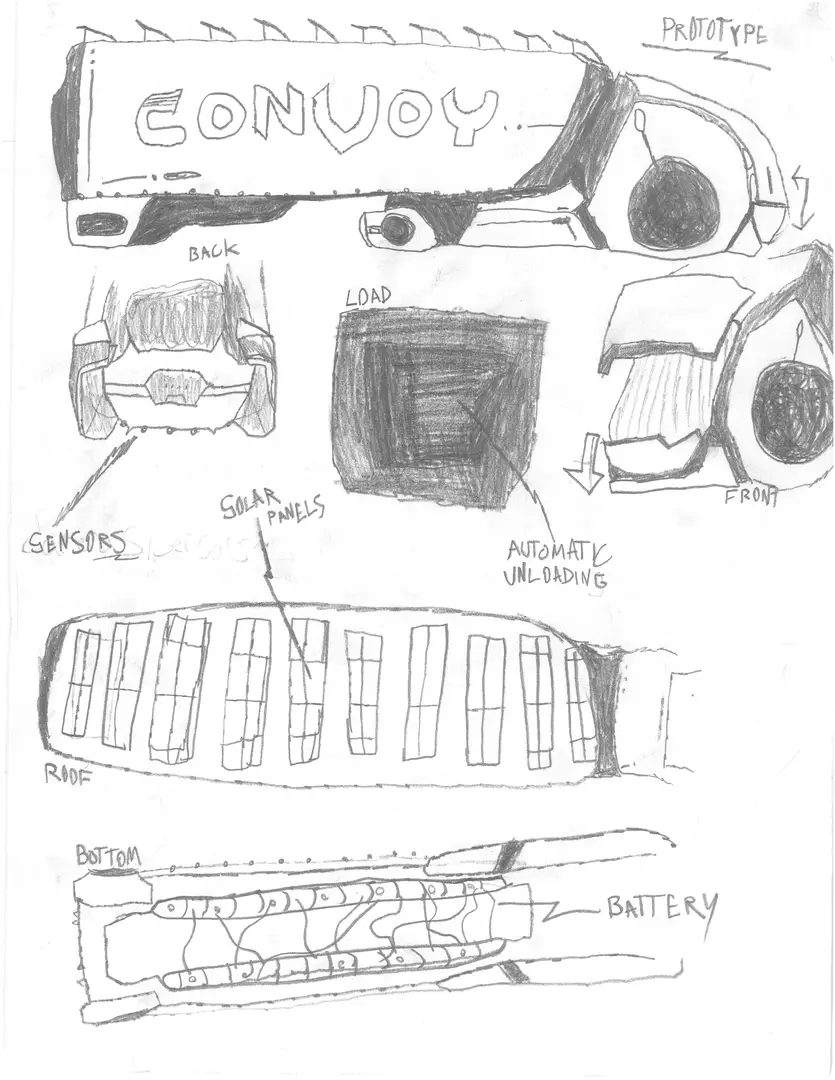 PROTOTYPE
CONVOY
BACK
LOAD
FRONT
SENSORS
SOLAR
PANELS
AUTOMATIC
UNLOADING
ROOF
BOTTOM
BATTERY